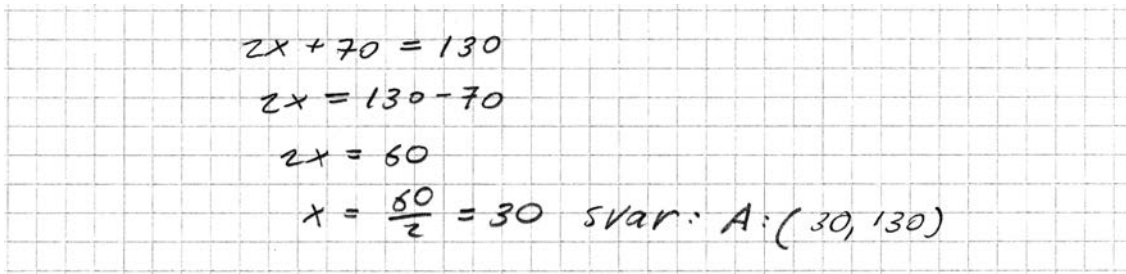 2x + 70 = 130
2x = 130 - 70
2x = 60
x = 60/2 = 30 svar: A:(30, 130)